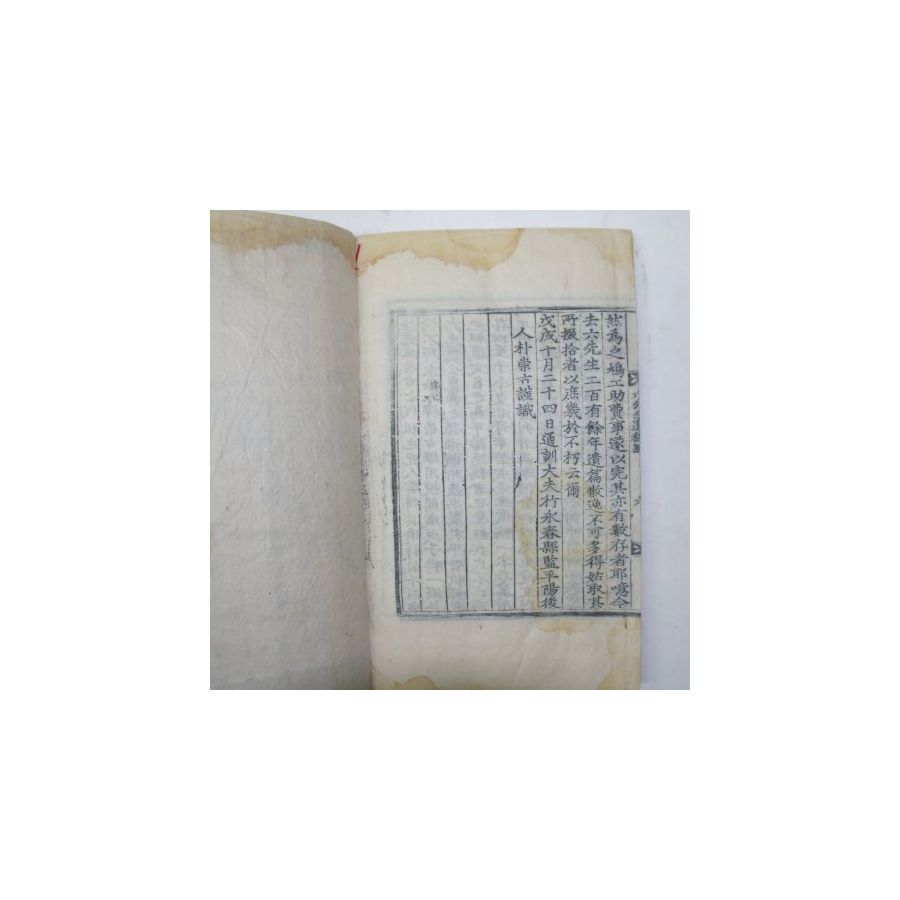 然為之鳩工助費事遂以完其亦有數存者耶噫今
去六先生二百有餘年遺篇散逸不可多得姑取其
所掇拾者以庶幾於不朽云爾
戊戌十月二十四日通訓大夫行永春縣監平陽後
人朴崇古謹識
六先生遺稿
六